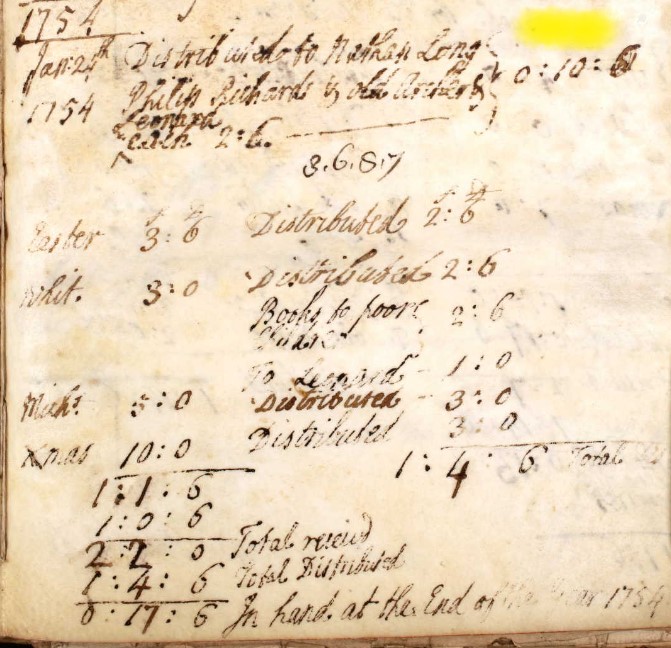 1754
Jan: 24th Distributed to Nathan Long
1754 Philip Richards & old Archer & 0:10:6
Leonard
each 2:6.
3.6.8.7
s d s d
Easter 3:6 Distributed 2:6
Whit. 3:0 Distributed 2:6
Books to poor 2:6
To Leonard 1:0
Michs 5:0 Distributed 3:0
Xmas 10:0 Distributed 3:0
1:4:6 Total
1:1:6
1:0:6
2:2:0 Total receivd
1:4:6 Total Distributed
0:17:6 In hand at the End of the Year 1754